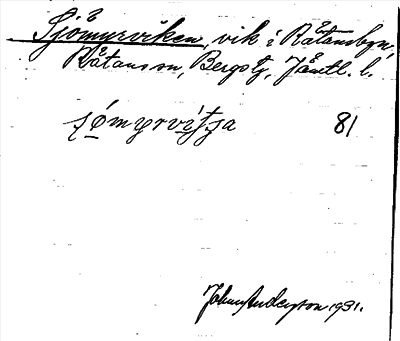 Sjömyrviken, vik i Råtansbyn,
Råtans sn, Bergs tg, Jämtl. l.
sjómyrvítja 81
Johan Anderson 1931.